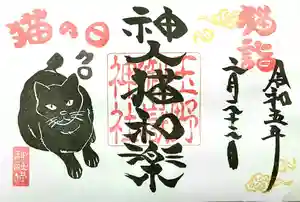 猫詣
令和五年
二月二十二日
神人猫和楽
猫の日
クロ